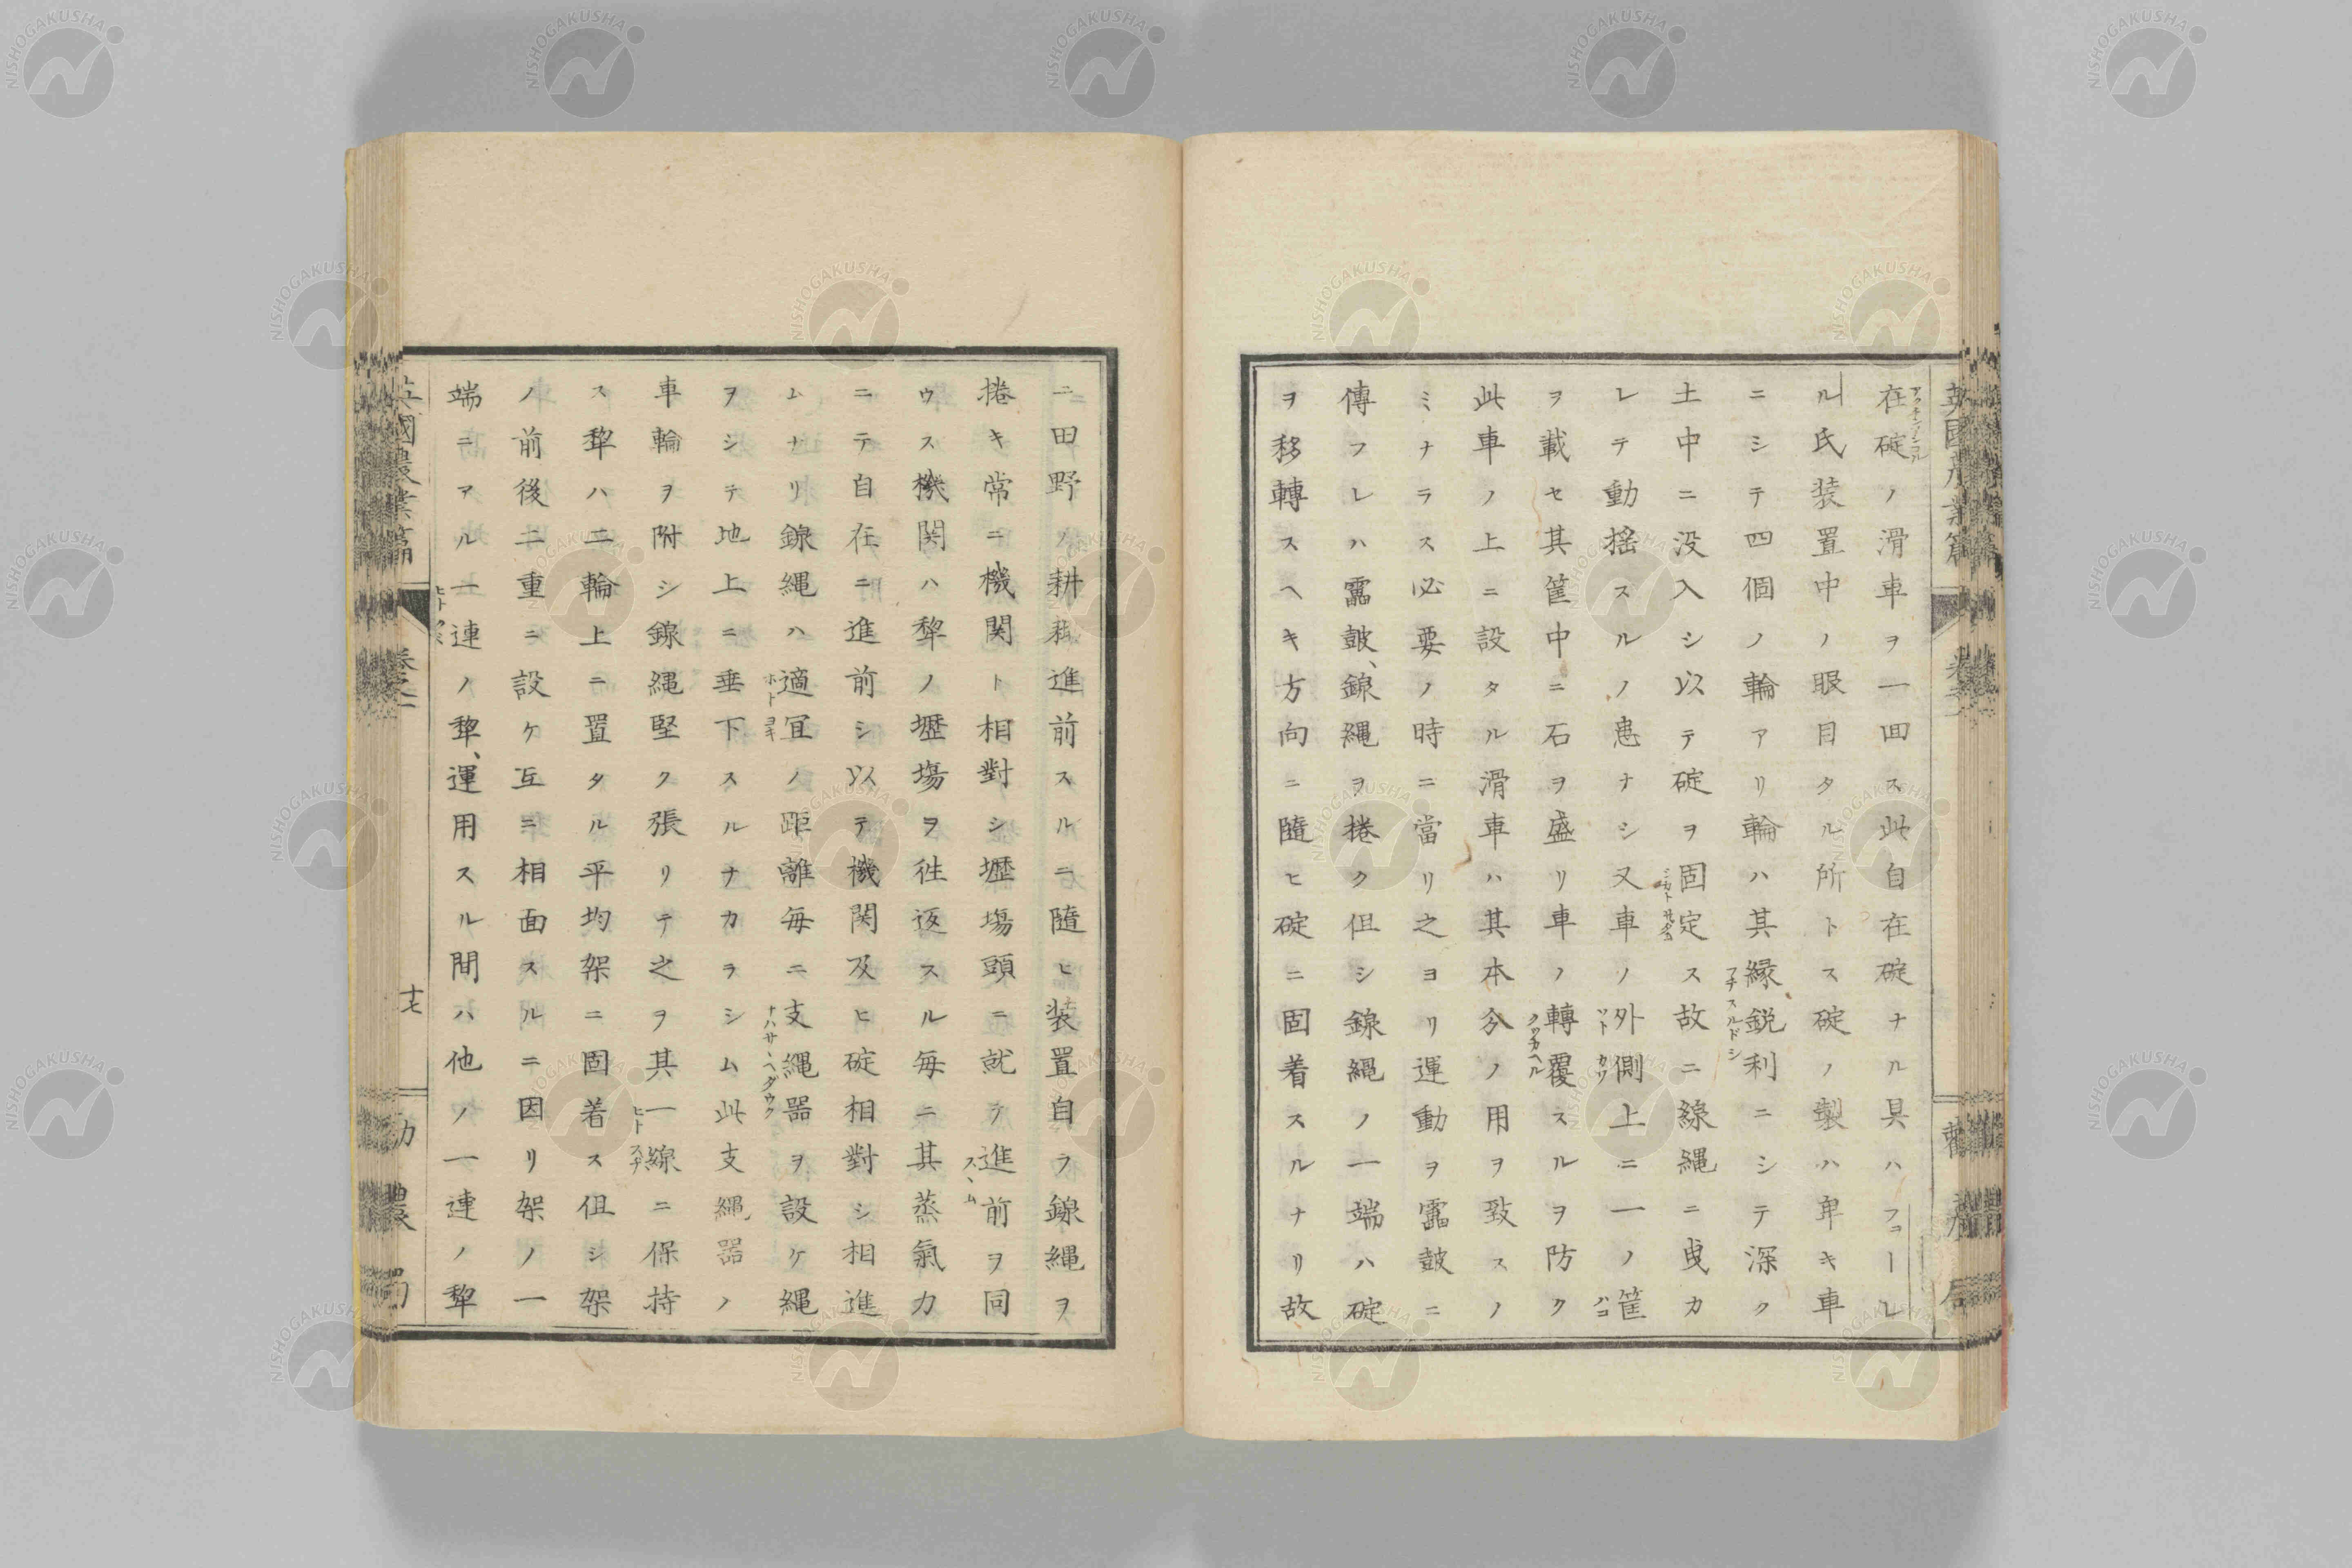 在碇ノ滑車ヲ一回ス此自在碇ナル具ハフョーレ
ル氏装置中ノ眼目タル所トス碇ノ製ハ卑キ車
ニシテ四個ノ輪アリ輪ハ其縁鋭利ニシテ深ク
土中ニ没入シ以テ碇ヲ固定ス故ニ線縄ニ曳カ
レテ動揺スルノ患ナシ又車ノ外側上ニ一ノ筐
ヲ載セ其筐中ニ石ヲ盛リ車ノ轉覆スルヲ防ク
此車ノ上ニ設タル滑車ハ其本分ノ用ヲ致スノ
ミナラス必要ノ時ニ當リ之ヨリ運動ヲ靁鼓ニ
傳フレハ靁鼓、線縄ヲ捲ク但シ線縄ノ一端ハ碇
ヲ移轉スヘキ方向ニ隨ヒ碇ニ固着スルナリ故
ニ田野ノ耕耘進前スルニ隨ヒ装置自ラ線縄ヲ
捲キ常ニ機関ト相對シ壢塲頭ニ就テ進前ヲ同
ウス機関ハ犂ノ壢塲ヲ徃返スル毎ニ其蒸氣力
ニテ自在ニ進前シ以テ機関及ヒ碇相對シ相進
ムナリ線縄ハ適宜ノ距離毎ニ支縄器ヲ設ケ縄
ヲシテ地上ニ垂下スルナカラシム此支縄器ノ
車輪ヲ附シ線縄堅ク張リテ之ヲ其一線ニ保持
ス犂ハ二輪上ニ置タル平均架ニ固着ス但シ架
ノ前後二重ニ設ケ互ニ相面スルニ因リ架ノ一
端ニアル一連ノ犂、運用スル間ハ他ノ一連ノ犂
英國農業篇 卷之二 十七 勸農局